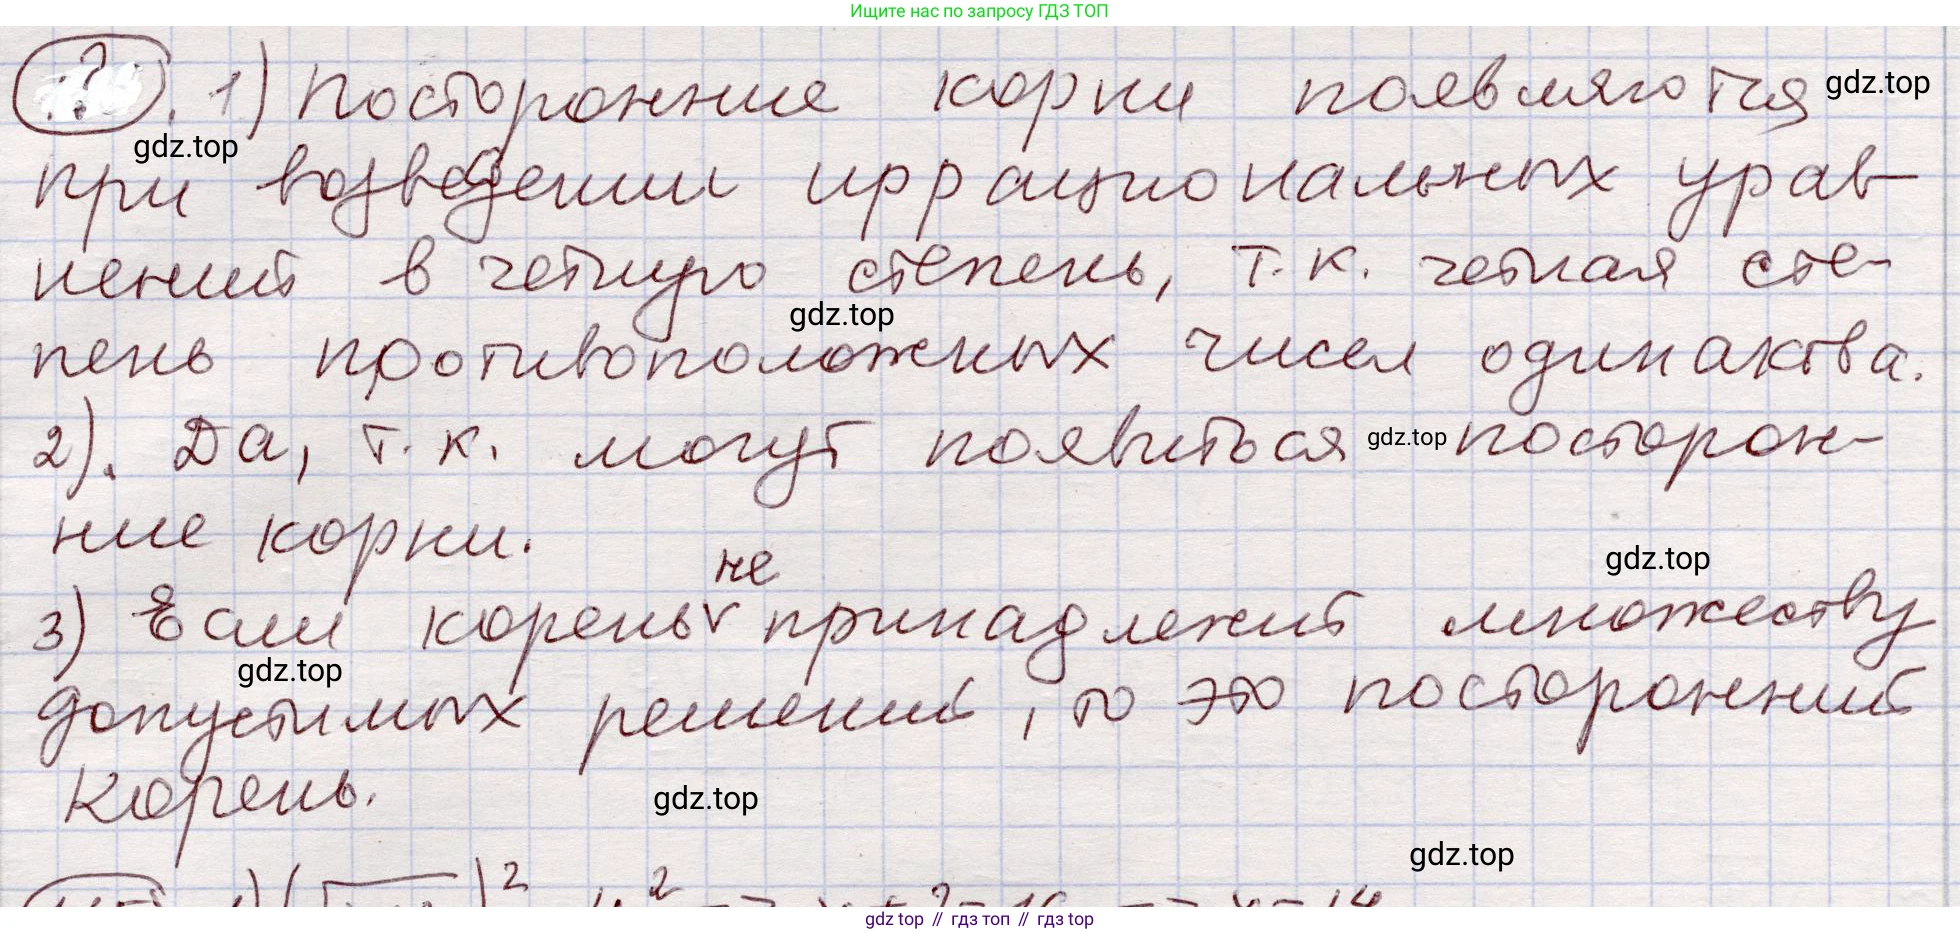 Ищите нас по запросу ГДЗ ТОП
? . 1) Посторонние корни появляются gdz.top
gdz.top
при возведении иррациональных урав-
нений в четную степень, т.к. четная сте-
gdz.top
пень противоположных чисел одинакова.
2). Да, т.к. могут появиться gdz.top посторон-
ние корни.
не
gdz.top
3) Если корень v принадлежит множеству
gdz.top
допустимых решений, то это посторонний
корень.
gdz.top
gdz.top
gdz top // гдз топ // гдз top